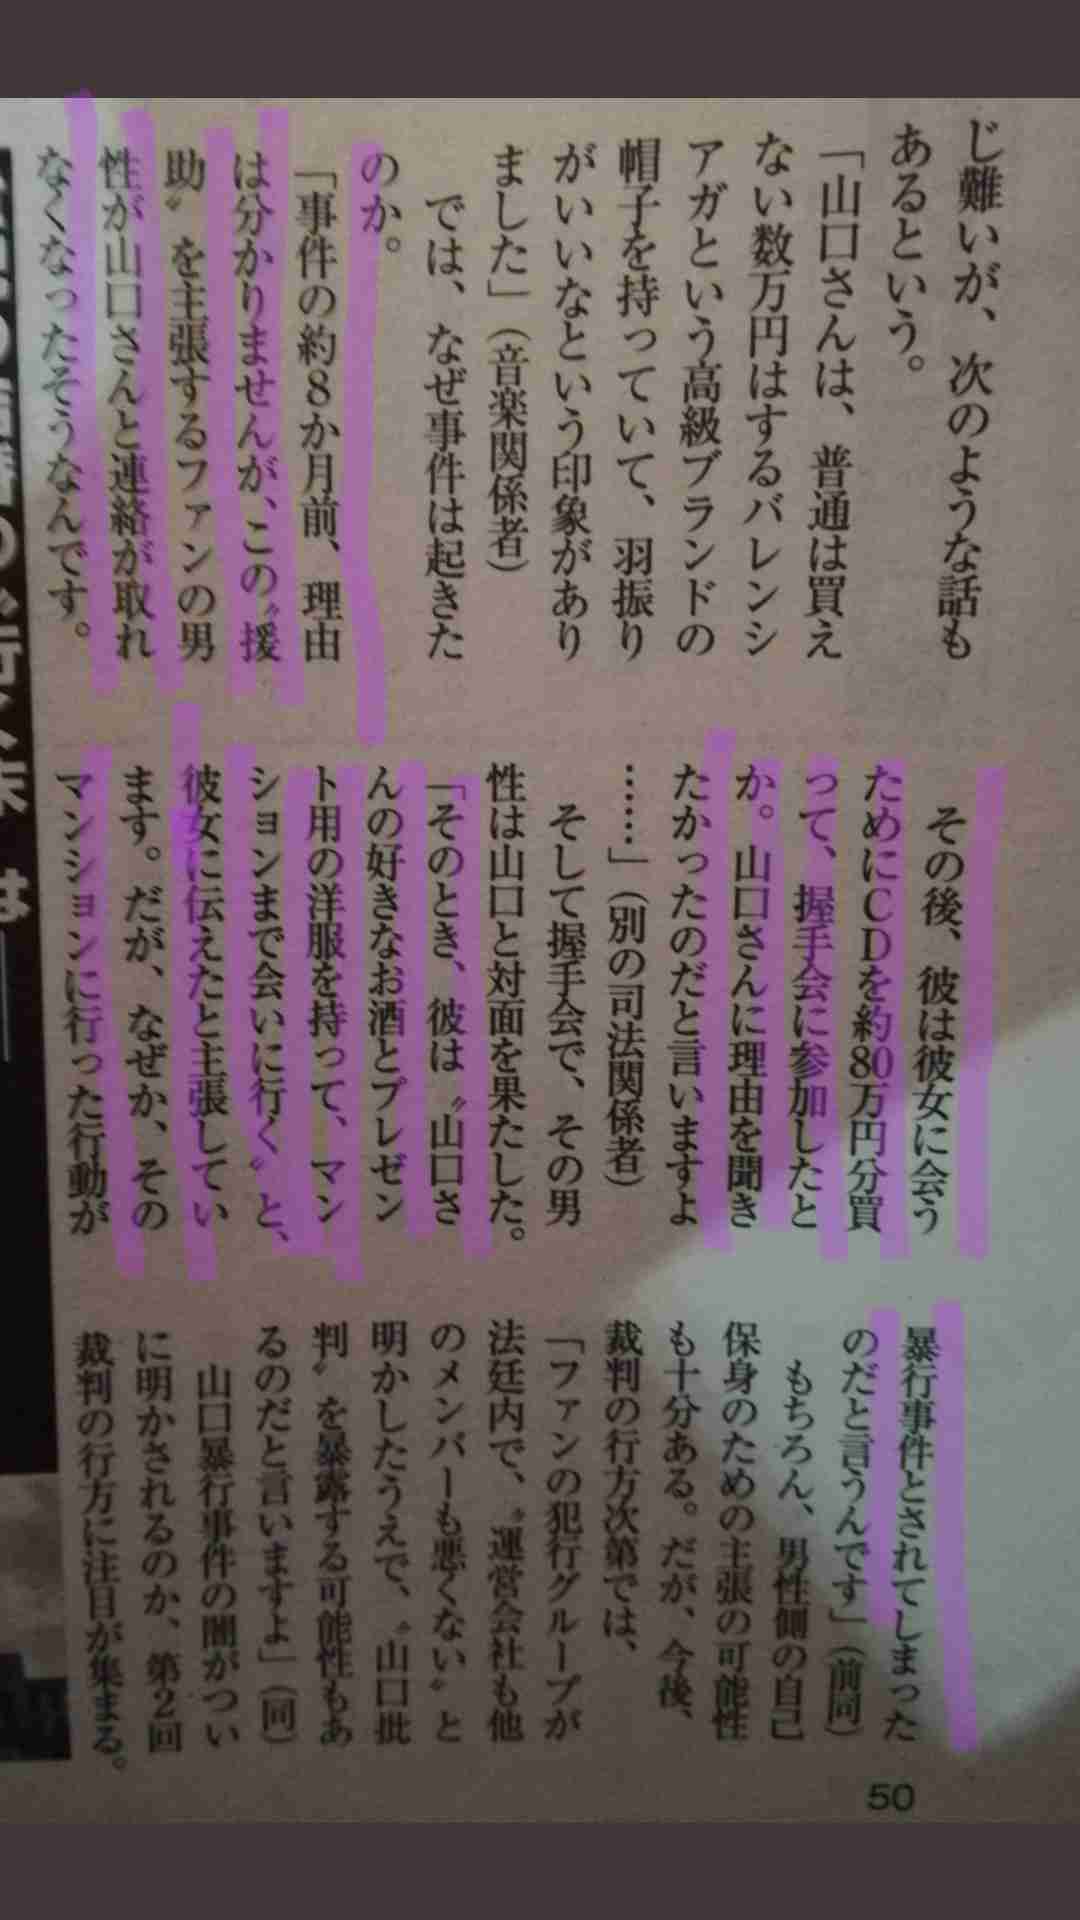 じ難いが、次のような話も
あるという。
「山口さんは、普通は買え
ない数万円はするバレンシ
アガという高級ブランドの
帽子を持っていて、羽振り
がいいなという印象があり
ました」（音楽関係者）
では、なぜ事件は起きた
のか。
「事件の約8か月前、理由
は分かりませんが、この〝援
助〟を主張するファンの男
性が山口さんと連絡が取れ
なくなったそうなんです。
その後、彼は彼女に会う
ためにCDを約80万円分買
って、握手会に参加したと
か。山口さんに理由を聞き
たかったのだと言いますよ
……」（別の司法関係者）
そして握手会で、その男
性は山口と対面を果たした。
「そのとき、彼は〝山口さ
んの好きなお酒とプレゼン
ト用の洋服を持って、マン
ションまで会いに行く〟と、
彼女に伝えたと主張してい
ます。だが、なぜか、その
マンションに行った行動が
暴行事件とされてしまった
のだと言うんです」（前同）
もちろん、男性側の自己
保身のための主張の可能性
も十分ある。だが、今後、
裁判の行方次第では、
「ファンの犯行グループが
法廷内で、〝運営会社も他
のメンバーも悪くない〟と
明かしたうえで、〝山口批
判〟を暴露する可能性もあ
るのだと言いますよ」（同）
山口暴行事件の闇がつい
に明かされるのか、第2回
裁判の行方に注目が集まる。
50